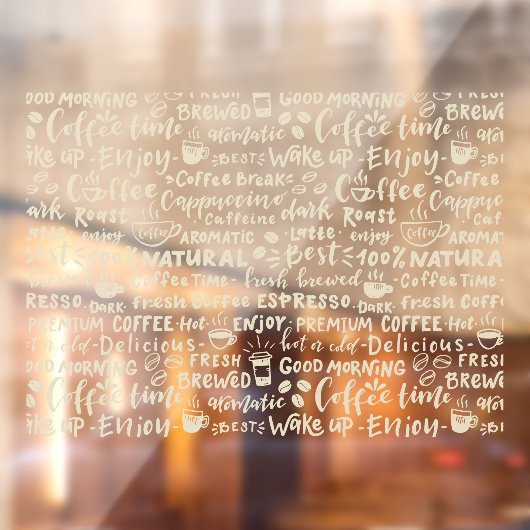 GOOD MORNING FRESH GOOD MORNING FRESH
BREWED BREWED
Coffee time aromatic Coffee time aroma
Wake up - Enjoy - BEST Wake up - Enjoy - BE
Coffee Coffee Break Coffee Coffee
Cappuccino Cappuc
dark Roast Caffeine dark Roast Caff
Latte enjoy Coffee AROMATIC Latte enjoy Coffee AROMATI
Best 100% NATURAL Best 100% NATURA
brewed - Coffee Time - fresh brewed - Coffee Time - fr
PRESSO DARK fresh Coffee ESPRESSO DARK fresh Coffee
PREMIUM COFFEE Hot ENJOY PREMIUM COFFEE Hot
hot or cold - Delicious - hot or cold - Delicious -
GOOD MORNING FRESH GOOD MORNING FRESH
BREWED BREWE
Coffee time aromatic Coffee time aroma
Wake up - Enjoy - BEST Wake up - Enjoy - BE